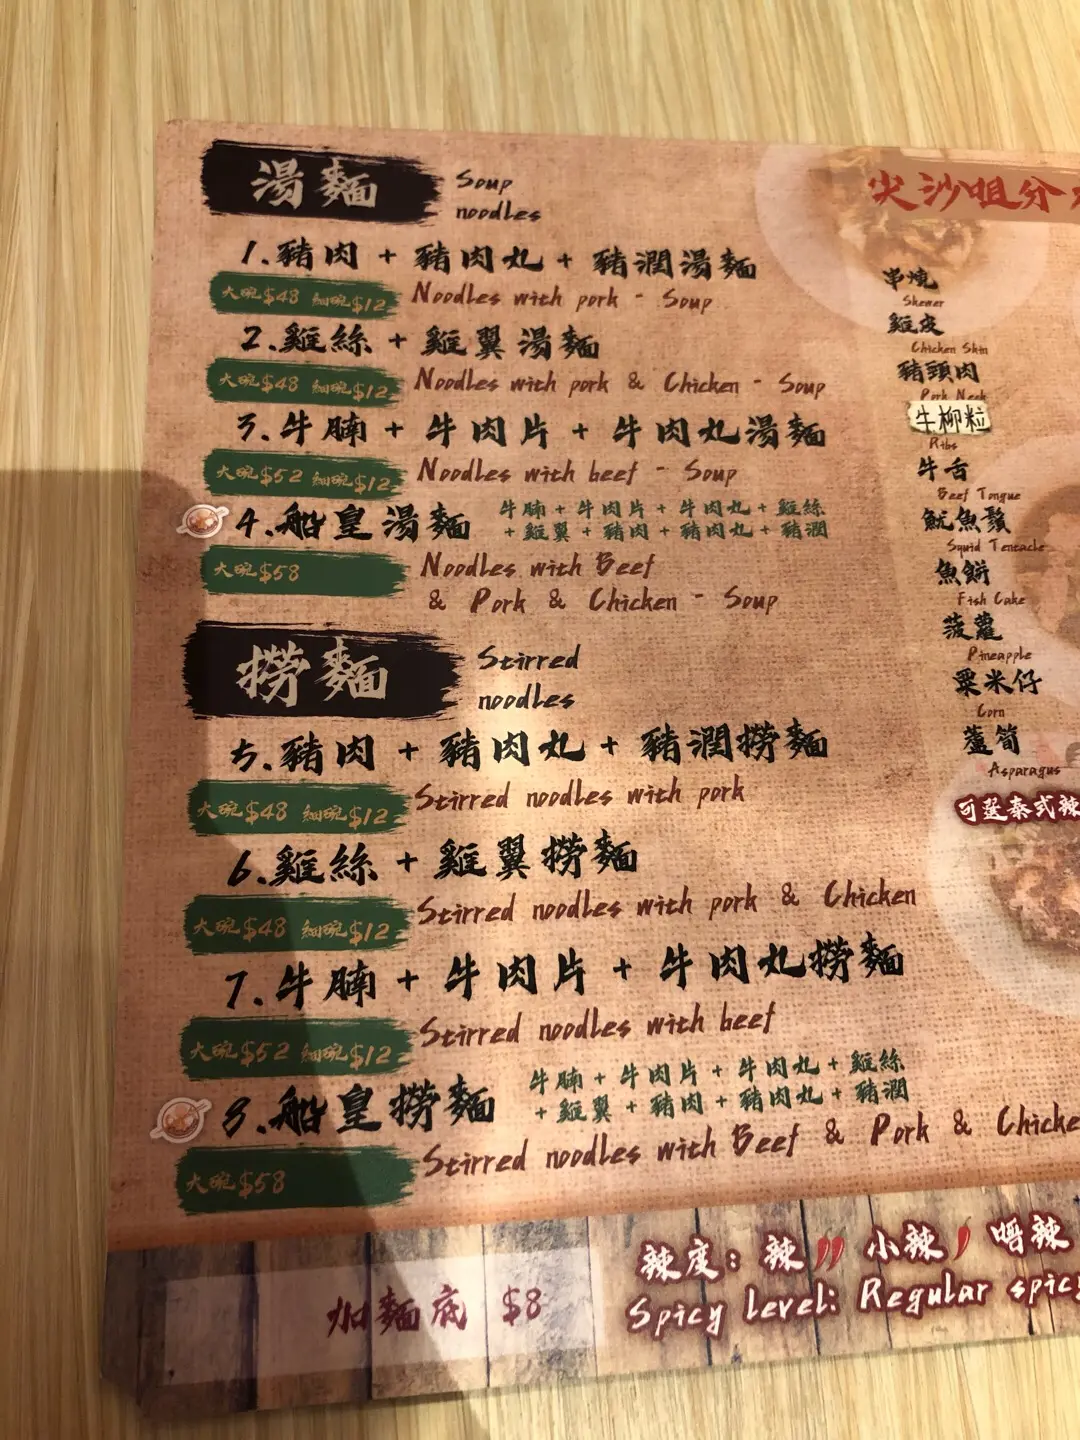 湯麵
Soup
noodles
1.豬肉 + 豬肉丸 + 豬潤湯麵
大碗$48 細碗$12
Noodles with pork - Soup
2.雞絲 + 雞翼湯麵
大碗$48 細碗$12
Noodles with pork & Chicken - Soup
3.牛腩 + 牛肉片 + 牛肉丸湯麵
大碗$52 細碗$12
Noodles with beef - Soup
4.船皇湯麵
牛腩 + 牛肉片 + 牛肉丸 + 雞絲
+ 雞翼 + 豬肉 + 豬肉丸 + 豬潤
大碗$58
Noodles with Beef
& Pork & Chicken - Soup
撈麵
Stirred
noodles
5.豬肉 + 豬肉丸 + 豬潤撈麵
大碗$48 細碗$12
Stirred noodles with pork
6.雞絲 + 雞翼撈麵
大碗$48 細碗$12
Stirred noodles with pork & Chicken
7.牛腩 + 牛肉片 + 牛肉丸撈麵
大碗$52 細碗$12
Stirred noodles with beef
8.船皇撈麵
牛腩 + 牛肉片 + 牛肉丸 + 雞絲
+ 雞翼 + 豬肉 + 豬肉丸 + 豬潤
大碗$58
Stirred noodles with Beef & Pork & Chicke
加麵底 $8
辣度：辣 小辣 唔辣
Spicy level: Regular spicy
尖沙咀分
串燒
Skewer
雞皮
Chicken Skin
豬頭肉
Pork Neck
牛柳粒
Ribs
牛舌
Beef Tongue
魷魚鬚
Squid Tentacle
魚餅
Fish Cake
菠蘿
Pineapple
粟米仔
Corn
蘆筍
Asparagus
可選泰式辣